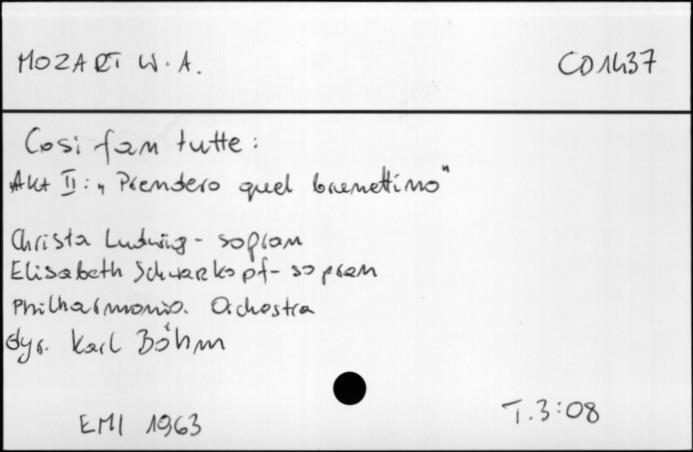 MOZART W. A. CD1437
Cosi fan tutte:
Akt II: „Prendero quel brunettino"
Christa Ludwig - sopran
Elisabeth Schwarzkopf - sopran
Philharmonia. Orchestra
dyr. Karl Böhm
EMI 1963 T.3:08